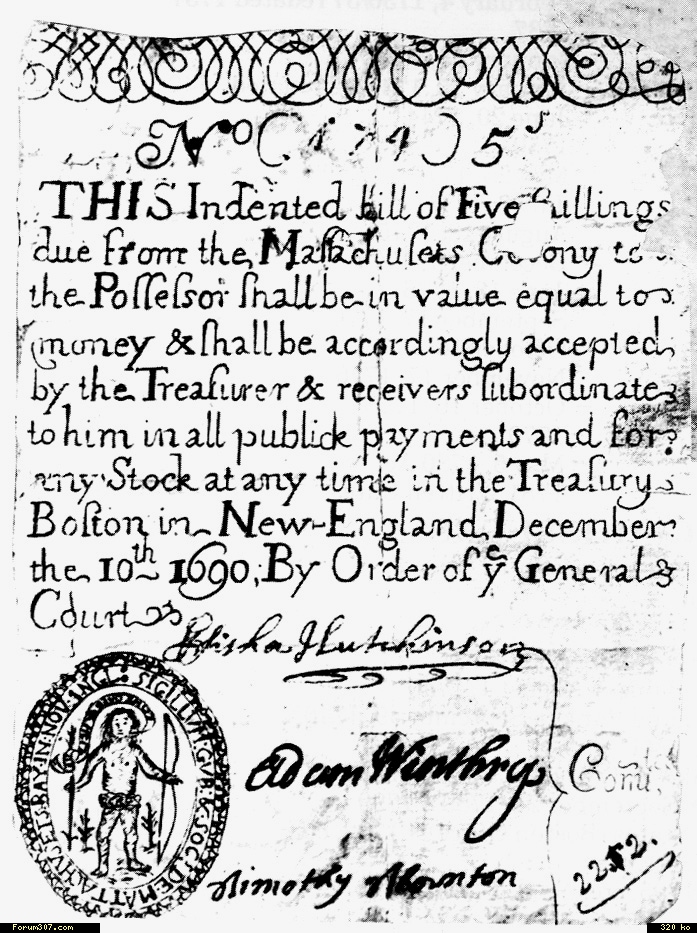 No (1741) 5s
THIS Indented bill of Five Shillings
due from the Massachusets Colony to
the Possessor shall be in value equal to
money & shall be accordingly accepted
by the Treasurer & receivers subordinate
to him in all publick payments and for
any Stock at any time in the Treasury
Boston in New-England, December
the 10th 1690, By Order of ye General
Court
Elisha Hutchinson
Adam Winthrop
Comtee
Timothy Thornton
SIGILLUM: GUB: & SOC: DE MATTACHUSETS BAY: IN: NOV: ANGL:
Forum307.com
320 ko